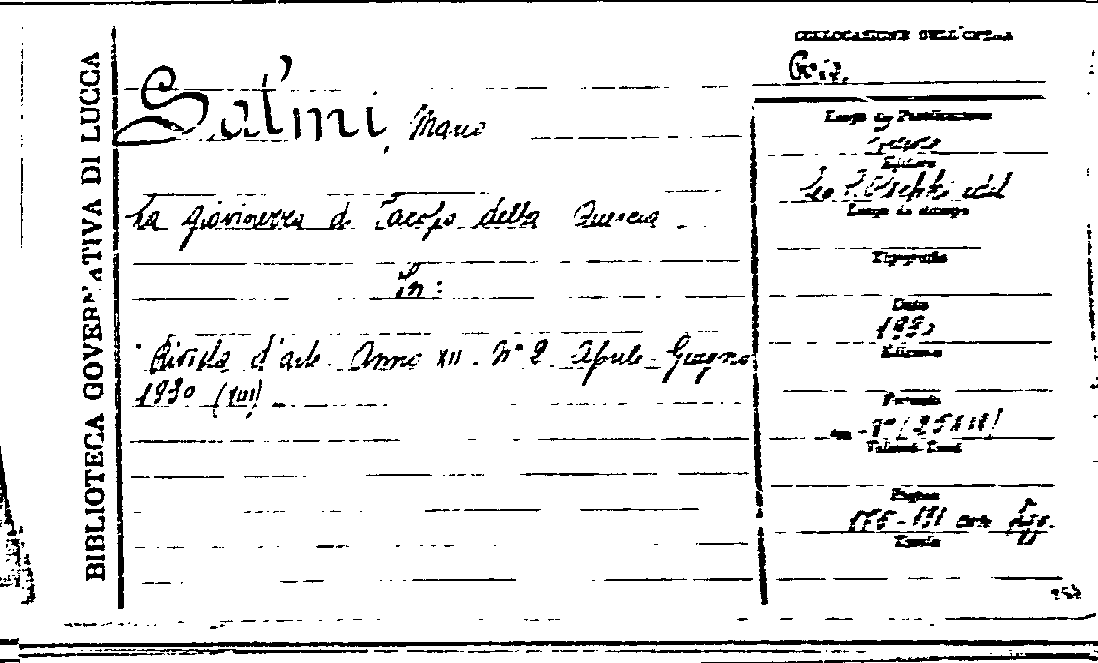 BIBLIOTECA GOVERNATIVA DI LUCCA
Salmi, Mario
La giovinezza di Jacopo della Quercia.
In:
Rivista d'arte Anno XII - N° 2 Aprile-Giugno
1930 (VIII)
COLLOCAZIONE DELL'OPERA
Luogo di Pubblicazione
Editore
Leo S. Olschki edit
Luogo di stampa
Tipografia
Data
1930
Edizione
Formato
in-8° (25X18)
Volumi-Tomi
Pagine
con figg.